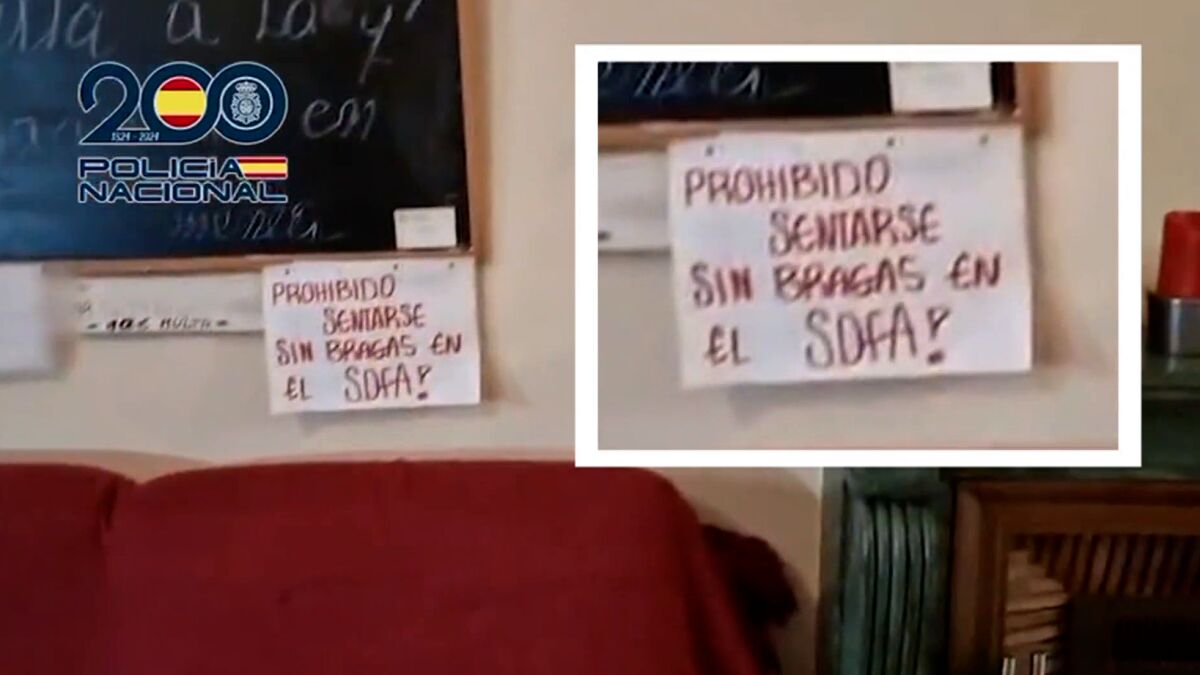 a la y
en
200
1824 - 2024
POLICIA
NACIONAL
- 10€ MULTA -
PROHIBIDO
SENTARSE
SIN BRAGAS EN
EL SOFA!
PROHIBIDO
SENTARSE
SIN BRAGAS EN
EL SOFA!